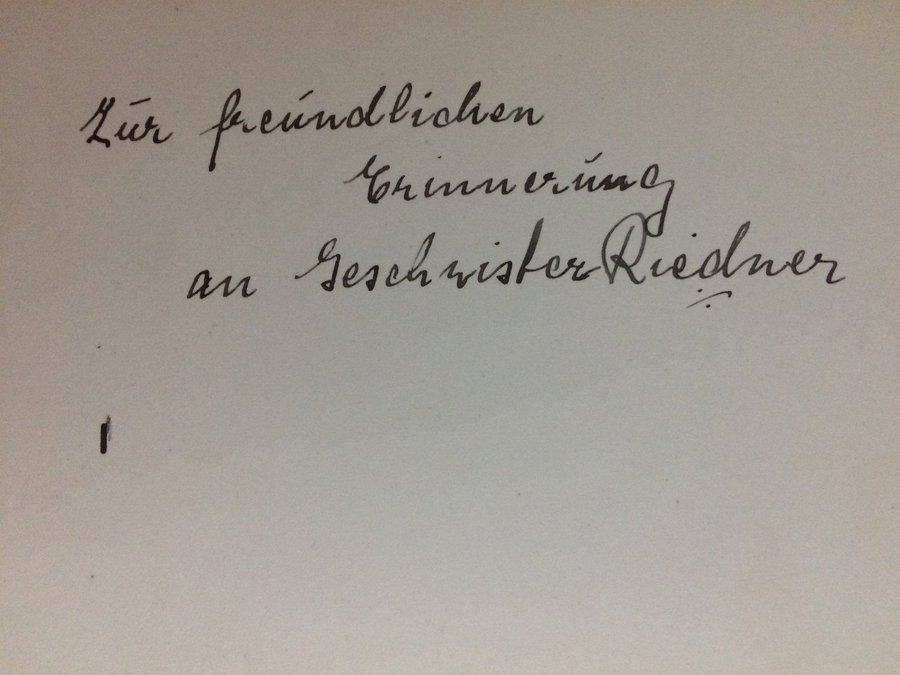 Zur freundlichen
Erinnerung
an Geschwister Riedner